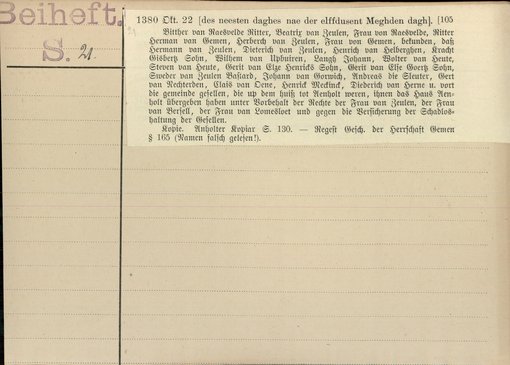 Beiheft.
S. 21.
1380 Okt. 22 [des neesten daghes nae der elffdusent Meghden dagh]. [105
Bitther van Raesvelde Ritter, Beatrix van Zeulen, Frau van Raesvelde, Ritter
Herman van Gemen, Herberch van Zeulen, Frau van Gemen, bekunden, daß
Hermann van Zeulen, Dieterich van Zeulen, Henrich van Helberghen, Kracht
Gisbertz Sohn, Wilhem van Upbuiren, Langh Johann, Wolter van Heute,
Steven van Heute, Gerit van Elze Henricks Sohn, Gerit van Else Goertz Sohn,
Sweder van Zeulen Bastard, Johann van Gorwich, Andreas die Sleuter, Gert
van Rechterden, Clais van Oene, Henrick Meckinck, Diederich van Herne u. vort
die gemeinde gesellen, die up dem huiß tot Aenholt weren, ihnen das Haus Aen-
holt übergeben haben unter Vorbehalt der Rechte der Frau van Zeulen, der Frau
van Versell, der Frau van Lomesloet und gegen die Versicherung der Schadlos-
haltung der Gesellen.
Kopie. Anholter Kopiar S. 130. — Regest Gesch. der Herrschaft Gemen
§ 165 (Namen falsch gelesen!).